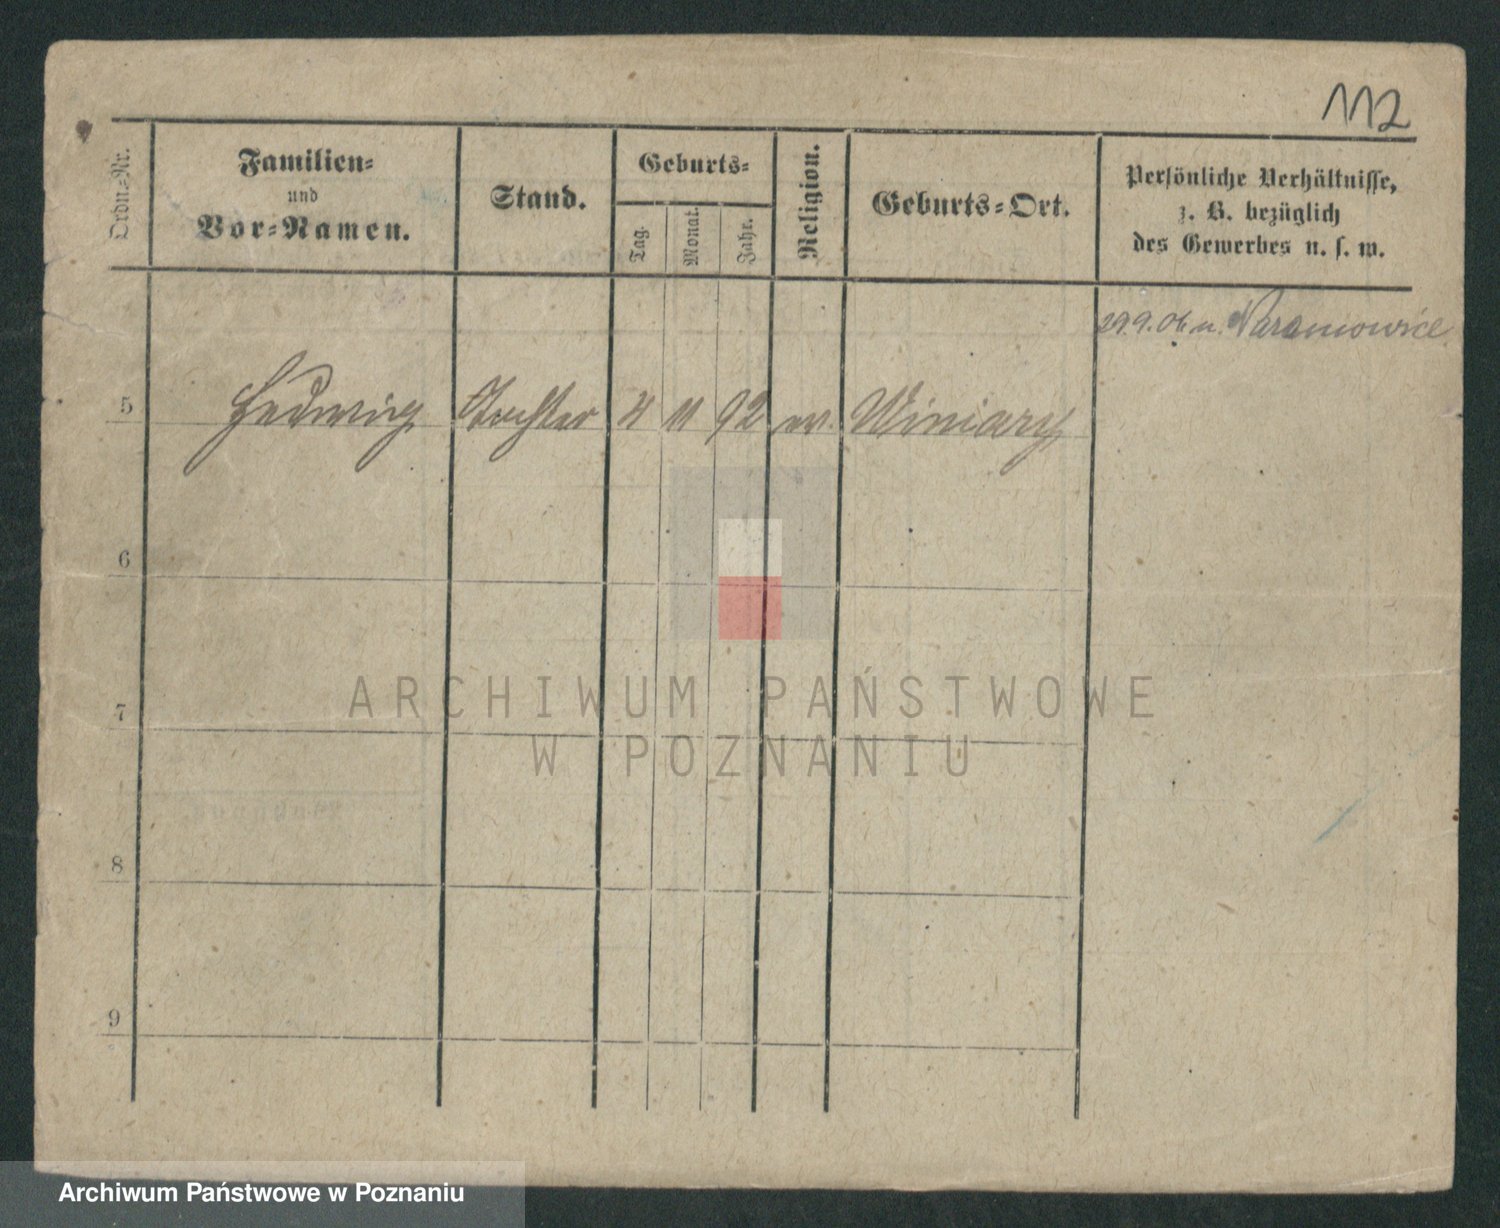 112
Ordn.-Nr.
Familien-
und
Vor-Namen.
Stand.
Geburts-
Tag.
Monat.
Jahr.
Religion.
Geburts-Ort.
Persönliche Verhältnisse,
z. B. bezüglich
des Gewerbes u. s. w.
29.9.06 n. Naramowice
5 Hedwig Tochter 4 11 92 ev. Winiary
6
7
8
9
ARCHIWUM PAŃSTWOWE
W POZNANIU
Archiwum Państwowe w Poznaniu